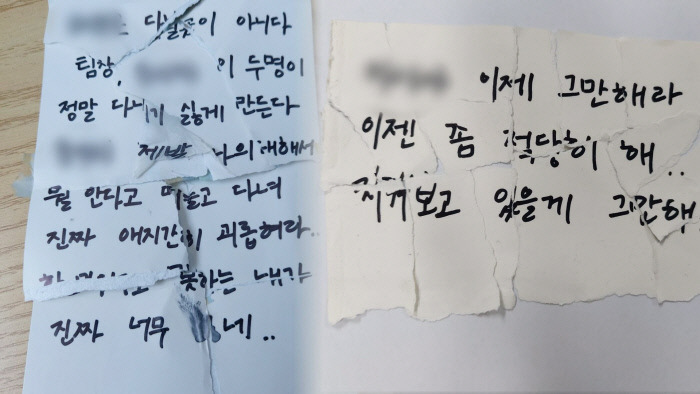 다닐곳이 아니다
팀장, 이 두명이
정말 다니기 싫게 만든다
제발 나의 대해서
뭘 안다고 떠들고 다녀
진짜 애지간히 괴롭혀라..
못하는 내가
진짜 너무 네..
이제 그만해라
이젠 좀 적당히 해..
지켜보고 있을게 그만해